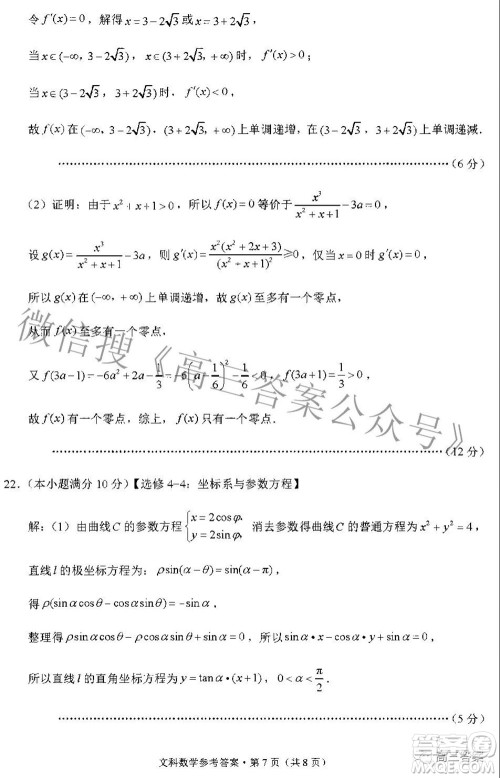 令f′(x)=0，解得x=3-2√3或x=3+2√3，
当x∈(-∞, 3-2√3)∪(3+2√3, +∞)时，f′(x)>0；
当x∈(3-2√3, 3+2√3)时，f′(x)<0，
故f(x)在(-∞, 3-2√3)，(3+2√3, +∞)上单调递增，在(3-2√3, 3+2√3)上单调递减.
（6分）
（2）证明：由于x²+x+1>0，所以f(x)=0等价于x³/(x²+x+1)-3a=0，
设g(x)=x³/(x²+x+1)-3a，则g′(x)=x²(x²+2x+3)/(x²+x+1)²≥0，仅当x=0时g′(x)=0，
所以g(x)在(-∞, +∞)上单调递增，故g(x)至多有一个零点，
从而f(x)至多有一个零点.
又f(3a-1)=-6a²+2a-1/3=-6(a-1/6)²-1/6<0，f(3a+1)=1/3>0，
故f(x)有一个零点，综上，f(x)只有一个零点.
（12分）
22.（本小题满分10分）【选修4-4：坐标系与参数方程】
解：（1）由曲线C的参数方程{x=2cosφ, y=2sinφ, 消去参数得曲线C的普通方程为x²+y²=4，
直线l的极坐标方程为：ρsin(α-θ)=sin(α-π)，
得ρ(sinαcosθ-cosαsinθ)=-sinα，
整理得sinα·ρcosθ-ρsinθcosα+sinα=0，所以sinα·x-cosα·y+sinα=0，
所以直线l的直角坐标方程为y=tanα·(x+1)，0<α<π/2.
（5分）
文科数学参考答案·第7页（共8页）
微信搜《高三答案公众号》
高三答案